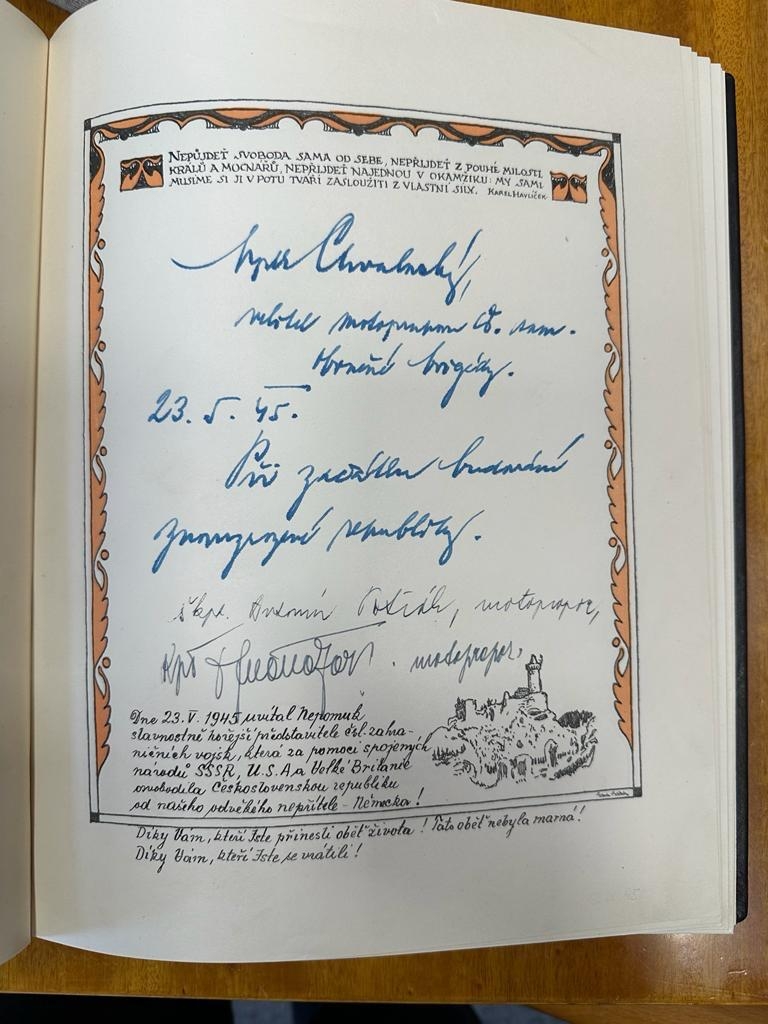 NEPŮJDEŤ SVOBODA SAMA OD SEBE, NEPŘIJDEŤ Z POUHÉ MILOSTI
KRÁLŮ A MOCNÁŘŮ, NEPŘIJDEŤ NAJEDNOU V OKAMŽIKU: MY SAMI
MUSÍME SI JI V POTU TVÁŘI ZASLOUŽITI Z VLASTNÍ SÍLY. KAREL HAVLÍČEK
Chvalovský,
velitel motopraporu čs. sam.
obrněné brigády.
23. 5. 45.
Při začátku budování
znovuzrozené republiky.
škpt. Antonín motoprapor,
Kpt motoprapor.
Dne 23. V. 1945 uvítal Nepomuk
slavnostně hořejší představitele čsl. zahra-
ničních vojsk, která za pomoci spojených
národů SSSR, U.S.A a Velké Britanie
osvobodila Československou republiku
od našeho odvěkého nepřítele - Německa!
Díky Vám, kteří Jste přinesli oběť života! Tato oběť nebyla marná!
Díky Vám, kteří Jste se vrátili!